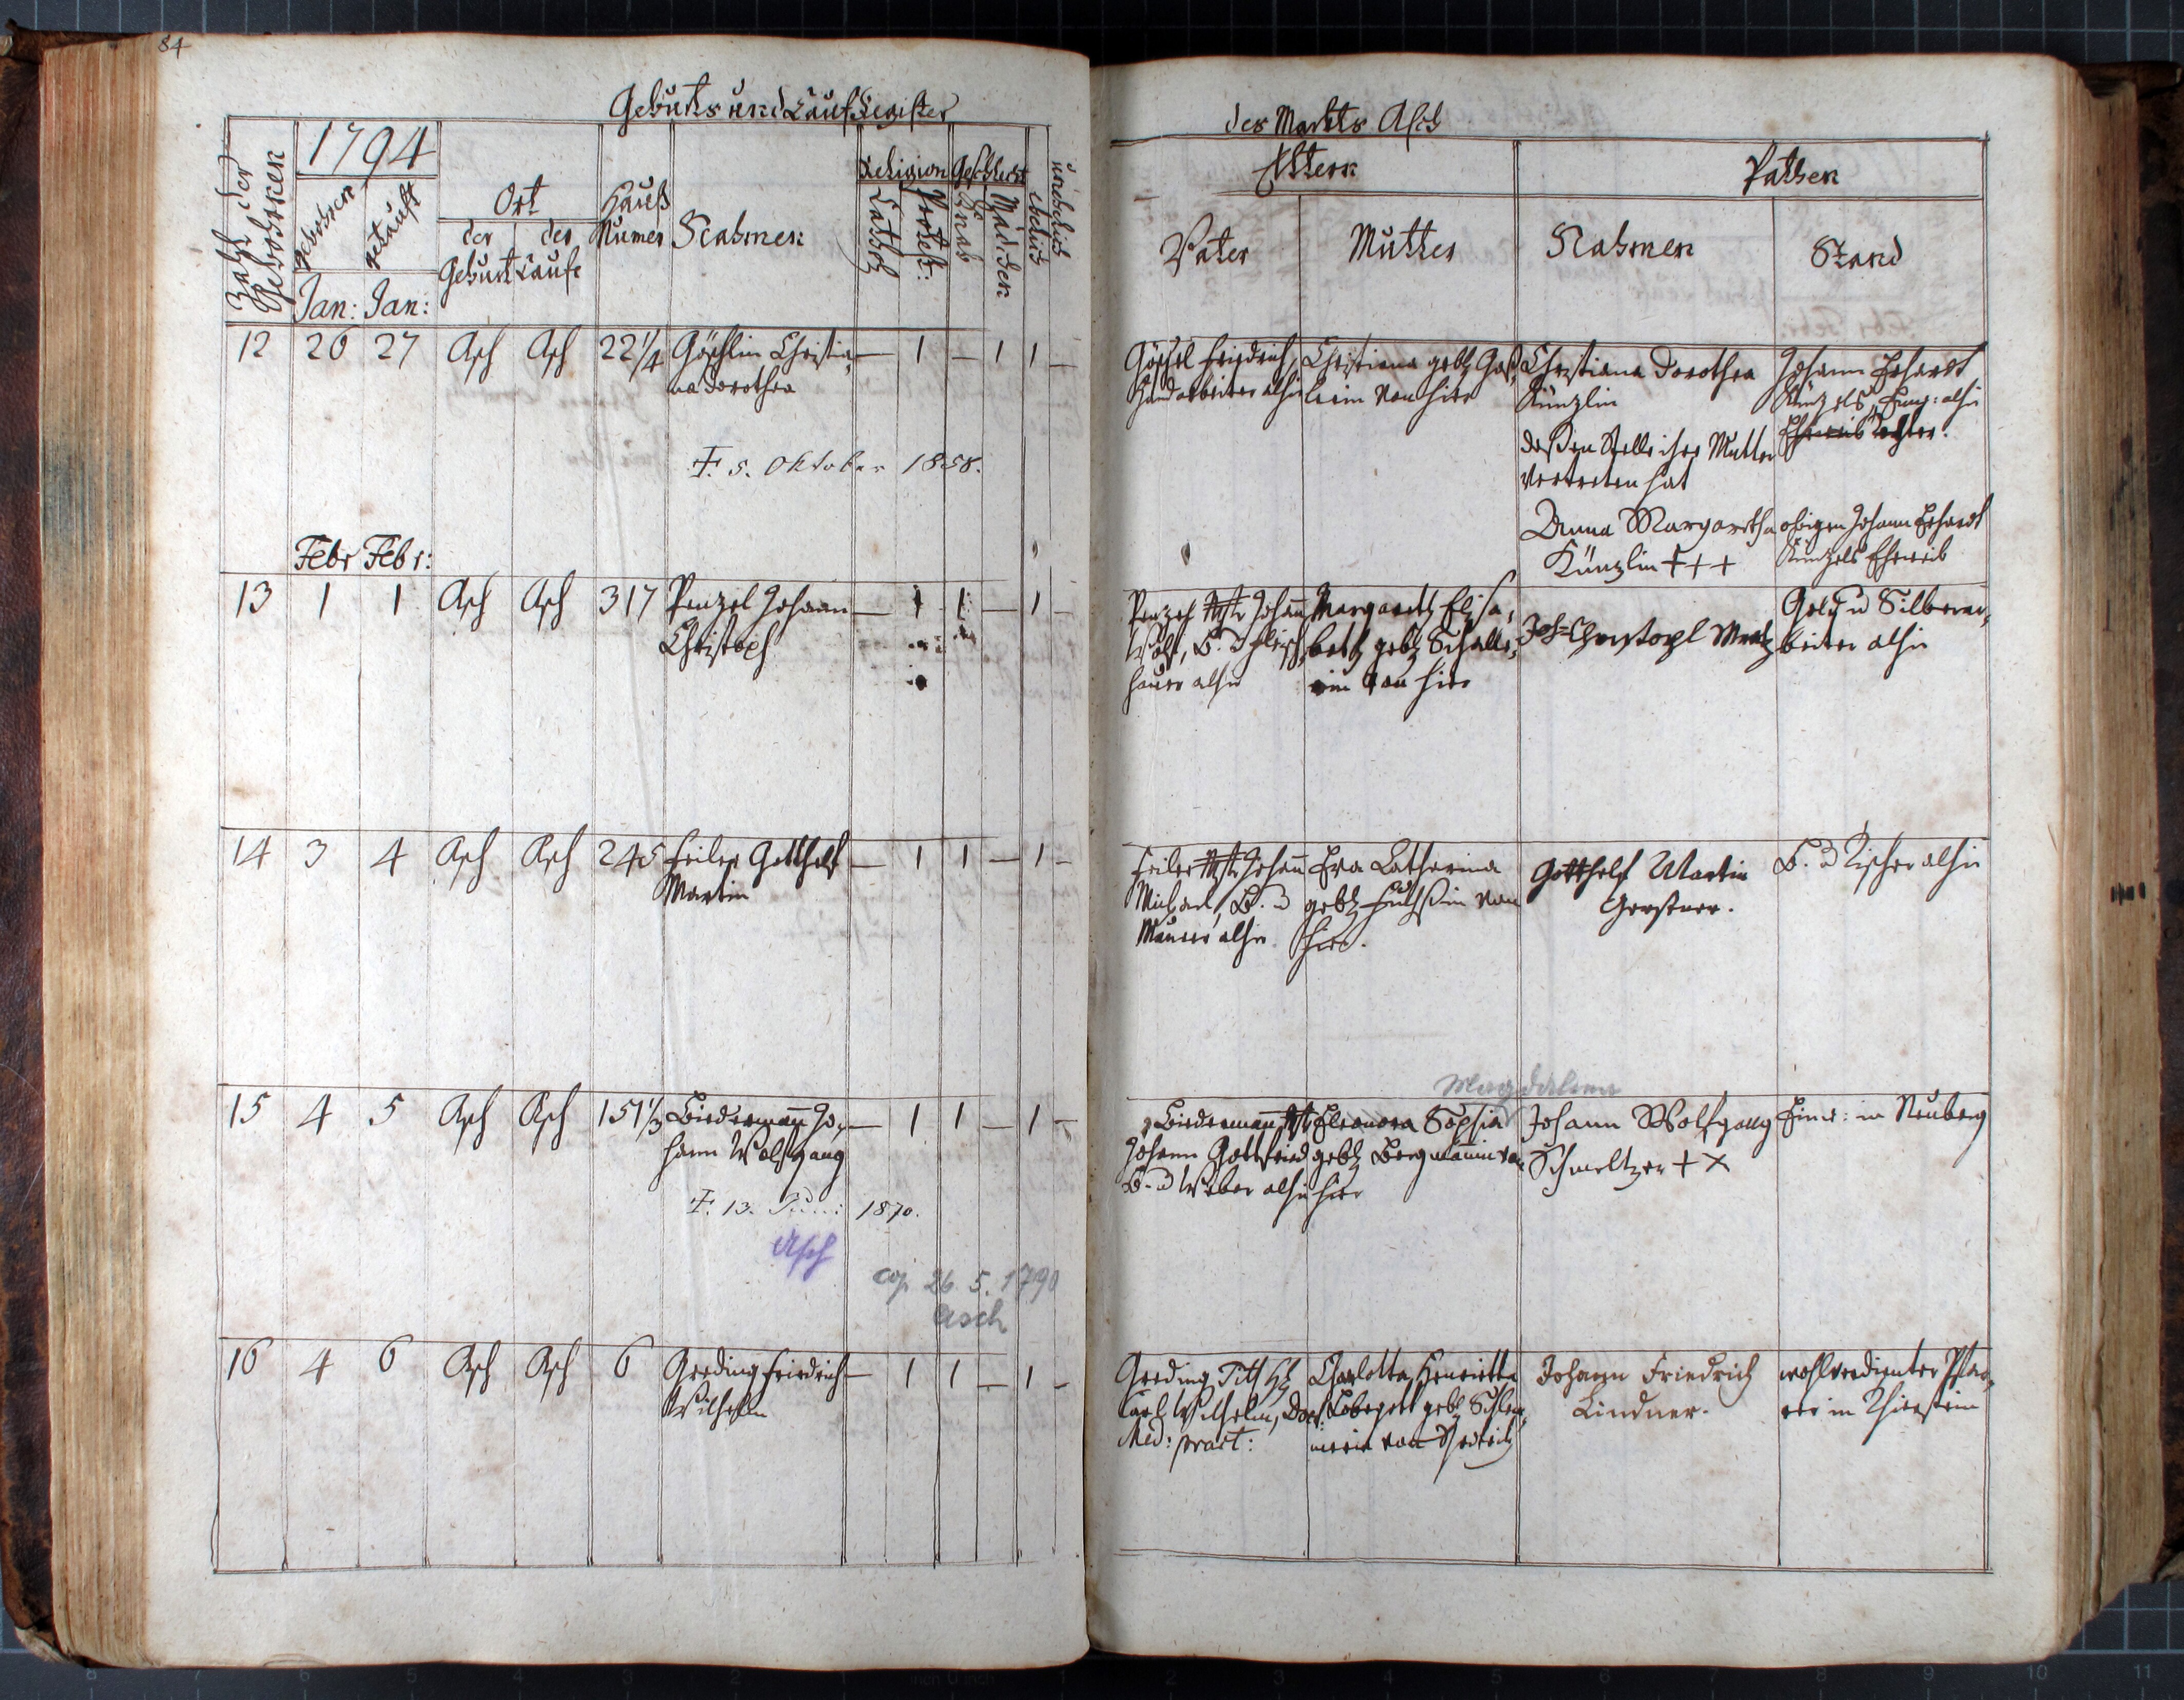 84
Geburts und Tauf Register
des Markts Asch
Zahl der Gebohrnen
1794
gebohren
getauft
Jan: Jan:
Ort
der Geburt
der Taufe
Hauß Numer
Nahmen
Religion
Cathol
Protest:
Geschlecht
Knab
Mädchen
ehelich
unehelich
Eltern
Vater
Mutter
Pathen
Nahmen
Stand
12 26 27 Asch Asch 22 1/4 Göschlin Christia„ — 1 — 1 1 —
na Dorothea
Ŧ. 5. Oktober 1858.
Göschel Friedrich,
Handarbeiter alhir
Christiana gebh
lerin von hier
Christiana Dorothea
Künzlin
deßen Stelle ihre Mutter
vertreten hat
Anna Margaretha
Künzlin +++
Johann Erhardt
Künzels, alhir
Eheweib Tochter.
obigen Johann Erhardt
Künzels Eheweib
Febr Febr:
13 1 1 Asch Asch 317 Penzel Johann — 1 1 — 1
Christoph
Penzel Mstr Johann
Wolf, B. u Fleisch„
hauer alhir
Margareth Elisa„
beth gebh Schaller„
in von hier
Joh= Christoph
Gold u Silberar„
beiter alhir
14 3 4 Asch Asch 245 Feiler Gotthelf — 1 1 — 1 —
Martin
Feiler Mstr Johann
Michael, B. u
Maurer alhir
Eva Catharina
gebh von
hier.
Gotthelf Martin
Gerstner.
B. u Tischer alhir
15 4 5 Asch Asch 151 1/3 Biedermann Jo„ — 1 1 — 1 —
hann Wolfgang
Ŧ. 13. Juni 1870.
Asch
cop 26 5. 1790
Asch
Magdalena
Biedermann, Mstr
Johann Gottfried
B. u Weber alhir
Eleonora Sophia
gebh Bergmännin von
hier
Johann Wolfgang
Schmeltzer + x
Einw: in Neuberg
16 4 6 Asch Asch 6 Greding Friedrich — 1 1 — 1 —
Wilhelm
Greding Titl H
Carl Wilhelm, Doct.
Med: pract:
Charlotta Henrietta
Lobegott gebh
von
Johann Friedrich
Lindner.
wohlverdienter Pfar„
rer in Thierstein